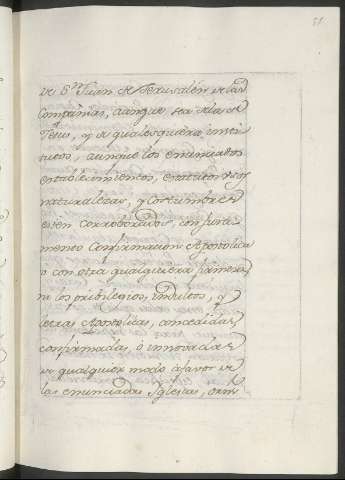 51
de Sn. Juan de Jerusalén de las
Compañias, aunque sea de la de
Jesus, y de qualesquiera insti
tutos, aunque los enunciados
establecimientos, estatutos
naturalezas, y costumbres
estén corroborados, con jura
mento Confirmacion Apostolica
o con otra qualquiera firmeza
ni los privilegios, indultos, y
letras Apostolicas, concedidas,
confirmadas, ò innovadas
de qualquier modo afavor de
las enunciadas Iglesias,